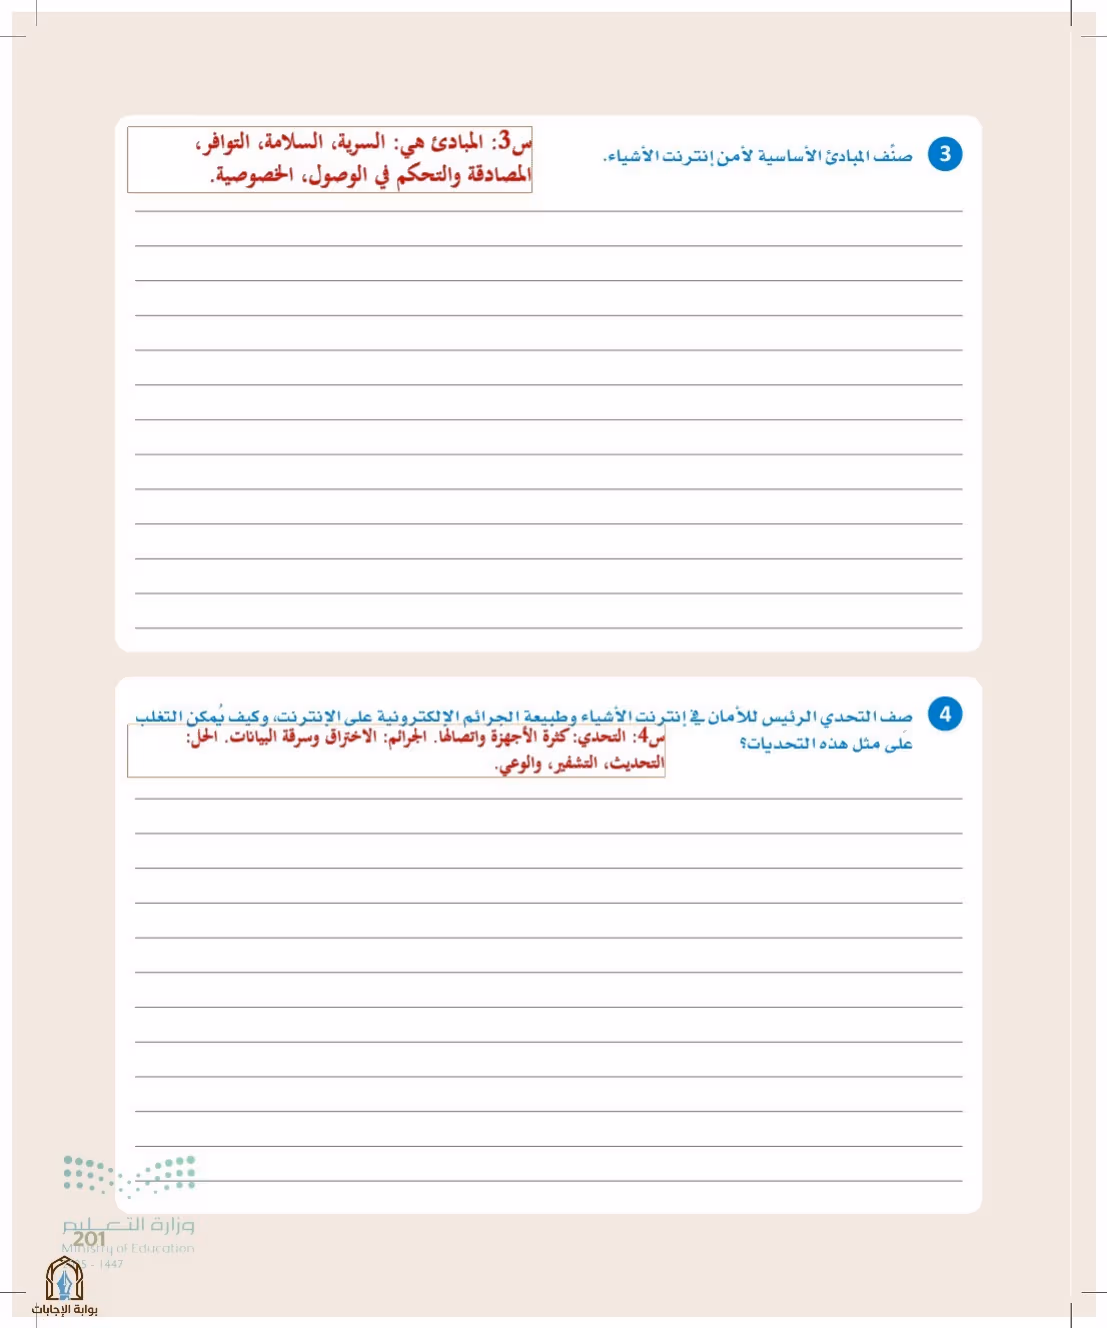 3 صنِّف المبادئ الأساسية لأمن إنترنت الأشياء.
س3: المبادئ هي: السرية، السلامة، التوافر،
المصادقة والتحكم في الوصول، الخصوصية.
4 صف التحدي الرئيس للأمان في إنترنت الأشياء وطبيعة الجرائم الإلكترونية على الإنترنت، وكيف يُمكن التغلب
على مثل هذه التحديات؟
س4: التحدي: كثرة الأجهزة واتصالها. الجرائم: الاختراق وسرقة البيانات. الحل:
التحديث، التشفير، والوعي.
وزارة التعليم
201
Ministry of Education
5 - 1447
بوابة الإجابات